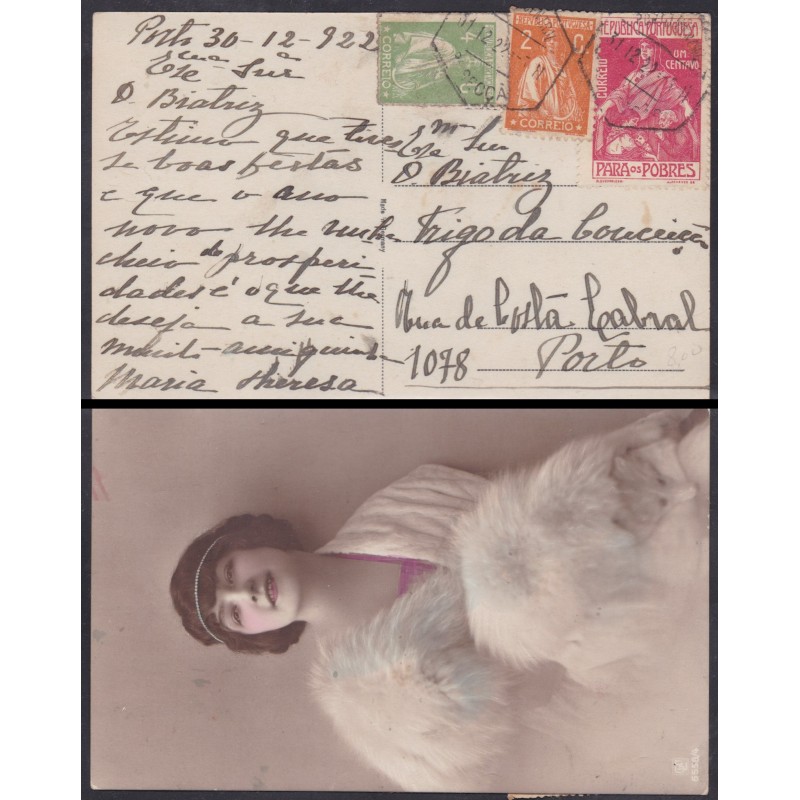 Porto 30-12-922
Exma Sra
D. Biatriz
Estimo que tives
se boas festas
e que o ano
novo lhe venha
cheio de prosperi
dades é o que lhe
deseja a sua
muito amiguinha
Maria Theresa
Made in Germany
4 C.
CORREIO
REPUBLICA PORTUGUESA
2 C.
CORREIO
REPUBLICA PORTUGUESA
CORREIO
UM
CENTAVO
PARA OS POBRES
Exma Sra
D. Biatriz
Trigo da Conceição
Rua de Costa Cabral
1078 Porto
800